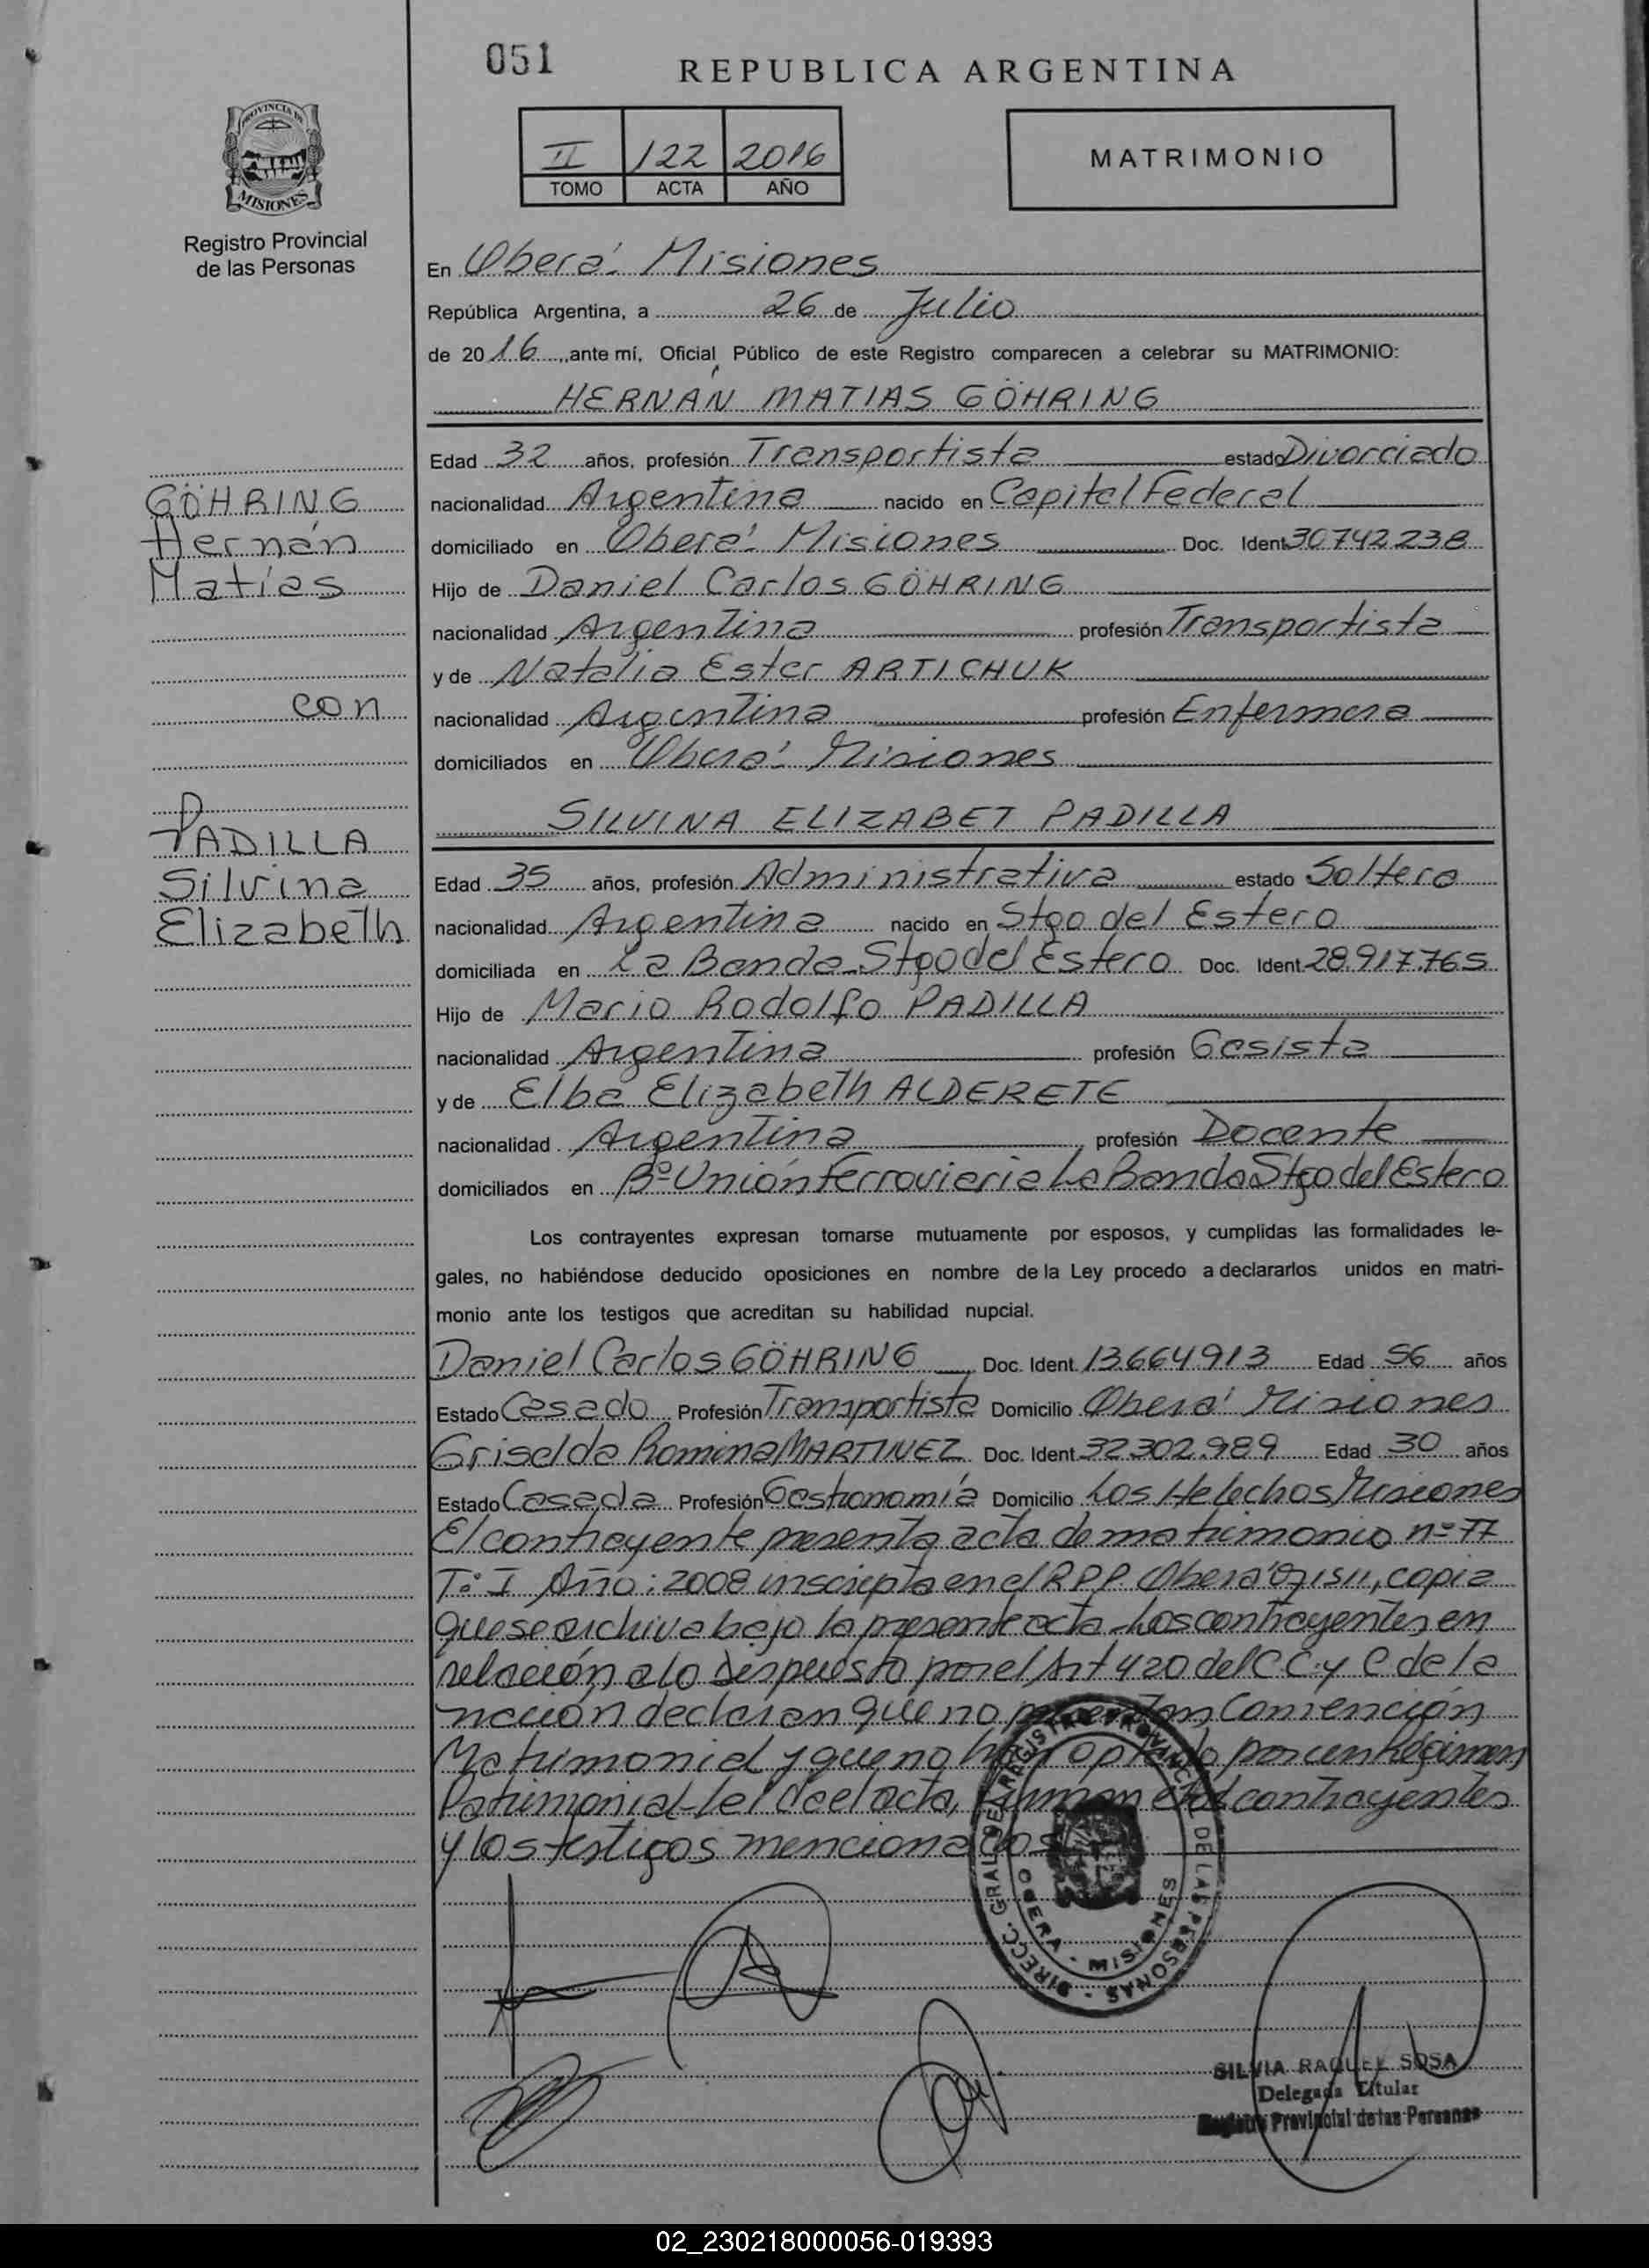 051
REPUBLICA ARGENTINA
PROVINCIA DE
MISIONES
Registro Provincial
de las Personas
II 122 2016
TOMO ACTA AÑO
MATRIMONIO
En Oberá. Misiones
República Argentina, a 26 de Julio
de 2016, ante mí, Oficial Público de este Registro comparecen a celebrar su MATRIMONIO:
HERNÁN MATIAS GÖHRING
Edad 32 años, profesión Transportista estado Divorciado
nacionalidad Argentina nacido en Capital Federal
domiciliado en Oberá. Misiones Doc. Ident. 30742238
Hijo de Daniel Carlos GÖHRING
nacionalidad Argentina profesión Transportista
y de Natalia Ester ARTICHUK
nacionalidad Argentina profesión Enfermera
domiciliados en Oberá. Misiones
GÖHRING
Hernán
Matías
con
PADILLA
Silvina
Elizabeth
SILVINA ELIZABET PADILLA
Edad 35 años, profesión Administrativa estado Soltera
nacionalidad Argentina nacido en Stgo del Estero
domiciliada en La Banda-Stgo del Estero Doc. Ident. 28.917.765
Hijo de Mario Rodolfo PADILLA
nacionalidad Argentina profesión Gesista
y de Elba Elizabeth ALDERETE
nacionalidad Argentina profesión Docente
domiciliados en Bº Unión Ferroviaria La Banda Stgo del Estero
Los contrayentes expresan tomarse mutuamente por esposos, y cumplidas las formalidades le-
gales, no habiéndose deducido oposiciones en nombre de la Ley procedo a declararlos unidos en matri-
monio ante los testigos que acreditan su habilidad nupcial.
Daniel Carlos GÖHRING Doc. Ident. 13664913 Edad 56 años
Estado Casado Profesión Transportista Domicilio Oberá Misiones
Griselda Romina MARTINEZ Doc. Ident. 32.302.989 Edad 30 años
Estado Casada Profesión Gastronomía Domicilio Los Helechos Misiones
El contrayente presenta acta de matrimonio nº 77
Tº: I Año: 2008 inscripta en el RPP. Oberá 071511, copia
que se archiva bajo la presente acta - Los contrayentes en
relación a lo Dispuesto por el Art 420 del C C. y C de la
nación declaran que no presentan Convención
Matrimonial y que no han optado por un Régimen
Patrimonial - el acta, firman contrayentes
y los testigos mencionados
DIRECC. GRAL. DEL REGISTRO PROVINCIAL DE LAS PERSONAS -
OBERA - MISIONES
SILVIA RAQUEL SOSA
Delegada Titular
Registro Provincial de las Personas
02_230218000056-019393